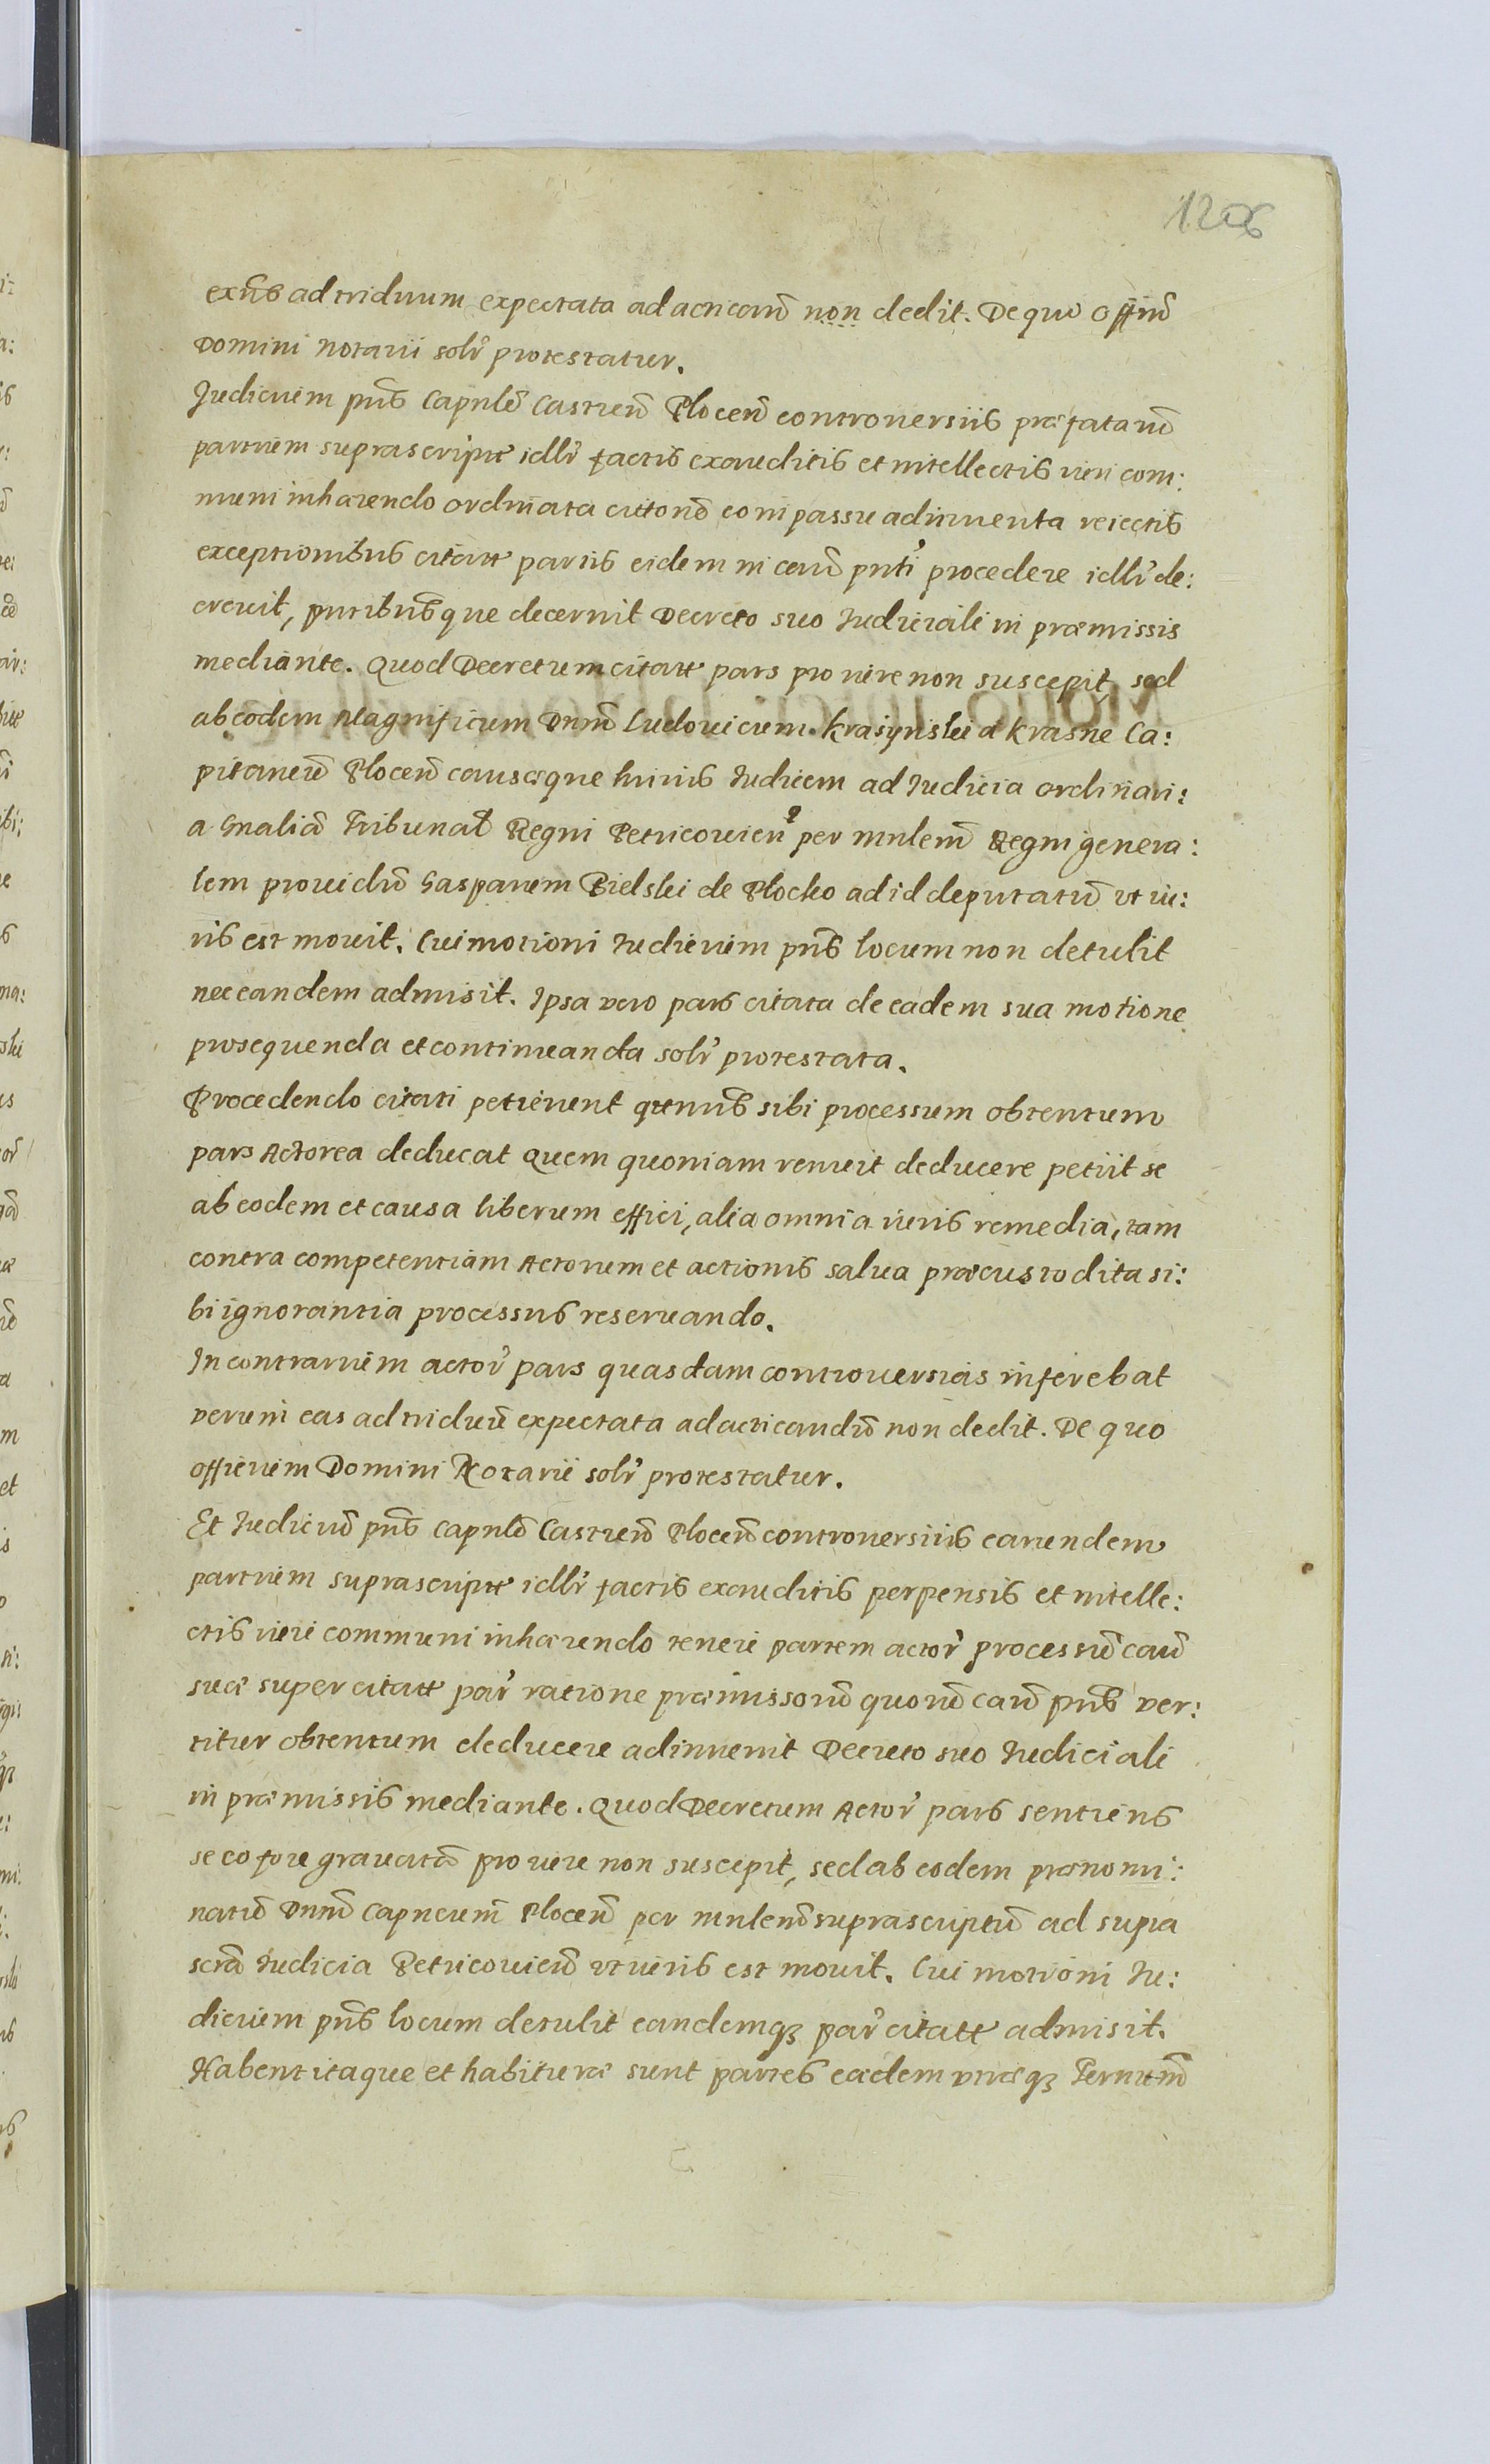 1206
exñs ad triduum expectata ad acticand̃ non dedit. De quo offiũ
Domini Notarii solr̃ protestatur.
Judicium pñs Capnlẽ Castreñ Ploceñ controuersiis præfatarũ
partium suprascriptt idllr̃ factis exauditis et intellectis iuri com:
muni inhærendo ordinata cittonẽ eo in passu adinuenta reiectis
exceptionibus citatt partis eidem in cauã pnti procedere idllr̃ de:
creuit, pntibusque decernit Decreto suo Judiciali in præmissis
mediante. Quod Decretum citatt pars pro iure non suscepit, sed
ab eodem Magnificum Dnũ Ludouicum Krasynski a Krasne Ca:
pitaneũ Ploceñ causæque huius Judicem ad Judicia ordinari:
a Gnaliã Tribunał Regni Petricouieñ per mnlem̃ Regni genera:
lem prouidũ Gasparem Bielski de Plocko ad id deputatũ vt iu:
ris est mouit. Cui motioni Judicium pñs locum non detulit
nec eandem admisit. Ipsa vero pars citata de eadem sua motione
prosequenda et continuanda solr̃ protestata.
Procedendo citati petierunt qtenus sibi processum obtentum
pars Actorea deducat quem quoniam renuit deducere petiit se
ab eodem et causa liberum effici, alia omnia iuris remedia, tam
contra competentiam Actorum et actionis salua præcustodita si:
bi ignorantia processus reseruando.
In contrarium actor̃ pars quasdam controuersias inferebat
verum eas ad triduũ expectata ad acticandũ non dedit. De quo
officium Domini Notarii solr̃ protestatur.
Et Judiciũ pñs Capnlẽ Castreñ Ploceñ controuersiis earundem
partium suprascriptt idllr̃ factis exauditis perpensis et intelle:
ctis iuri communi inhærendo teneri partem actor̃ processũ cauã
suæ super citatt par̃ ratione præmissorũ quorũ cauã pñs ver:
titur obtentum deducere adinuenit Decreto suo Judiciali
in præmissis mediante. Quod Decretum Actor̃ pars sentiens
se eo fore grauatã pro iure non suscepit, sed ab eodem prænomi:
natũ Dnũ Capneum̃ Ploceñ per mnlem̃ suprascriptũ ad supra
scrã Judicia Petricouieñ vt iuris est mouit. Cui motioni Ju:
dicium pñs locum detulit eandemqȝ par̃ citatt admisit.
Habent itaque et habituræ sunt partes eædem vtræqȝ Termũ